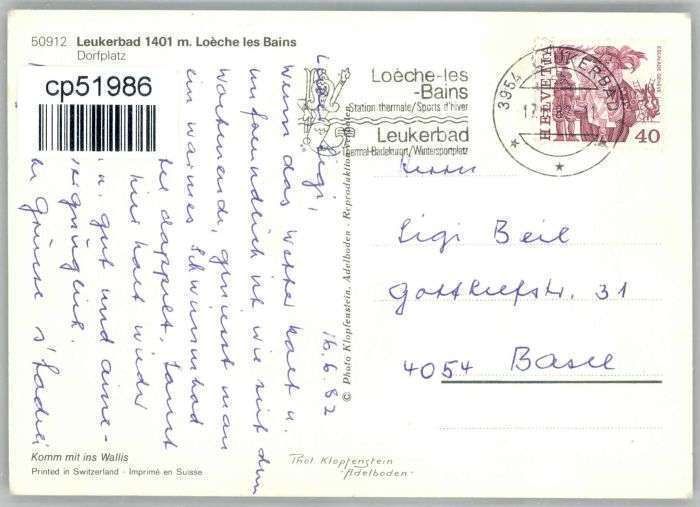 50912 Leukerbad 1401 m. Loèche les Bains
Dorfplatz
cp51986
Loèche-les
-Bains
Station thermale/Sports d'hiver
Leukerbad
Thermal-Badekurort/Wintersportplatz
3954 LEUKERBAD
HELVETIA
40
16.6.82
Sigi,
Wenn das Wetter kalt u.
unfreundlich ist wie seit dem
Wochenende, geniesst man
ein warmes Schwimmbad
doppelt. Sonst
hier halt wieder
u. gut und
Grüsse
Herrn
Sigi Beil
Gottliefstr. 31
4054 Basel
© Photo Klopfenstein, Adelboden - Reproduktion verboten
Komm mit ins Wallis
Printed in Switzerland - Imprimé en Suisse
Phot Klopfenstein
-Adelboden-